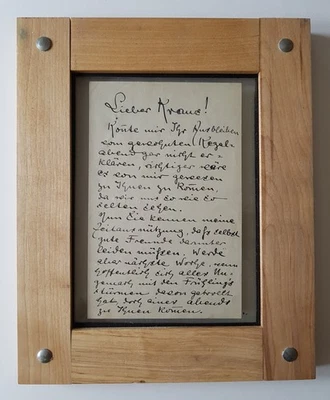 Lieber Kraus!
Konte mir Ihr Ausbleiben
vom gewohnten Kegel-
abend gar nicht er-
klären, richtiger wäre
es von mir gewesen
zu Ihnen zu komen,
da wir uns so wie so
selten sehen.
Nun Sie kennen meine
Zeitausnützung, daß selbst
gute Freunde darunter
leiden müssen. Werde
aber nächste Woche, wenn
hoffentlich sich alles Un-
gemach mit den Frühlings
stürmen davon getrollt
hat, doch eines abends
zu Ihnen komen.